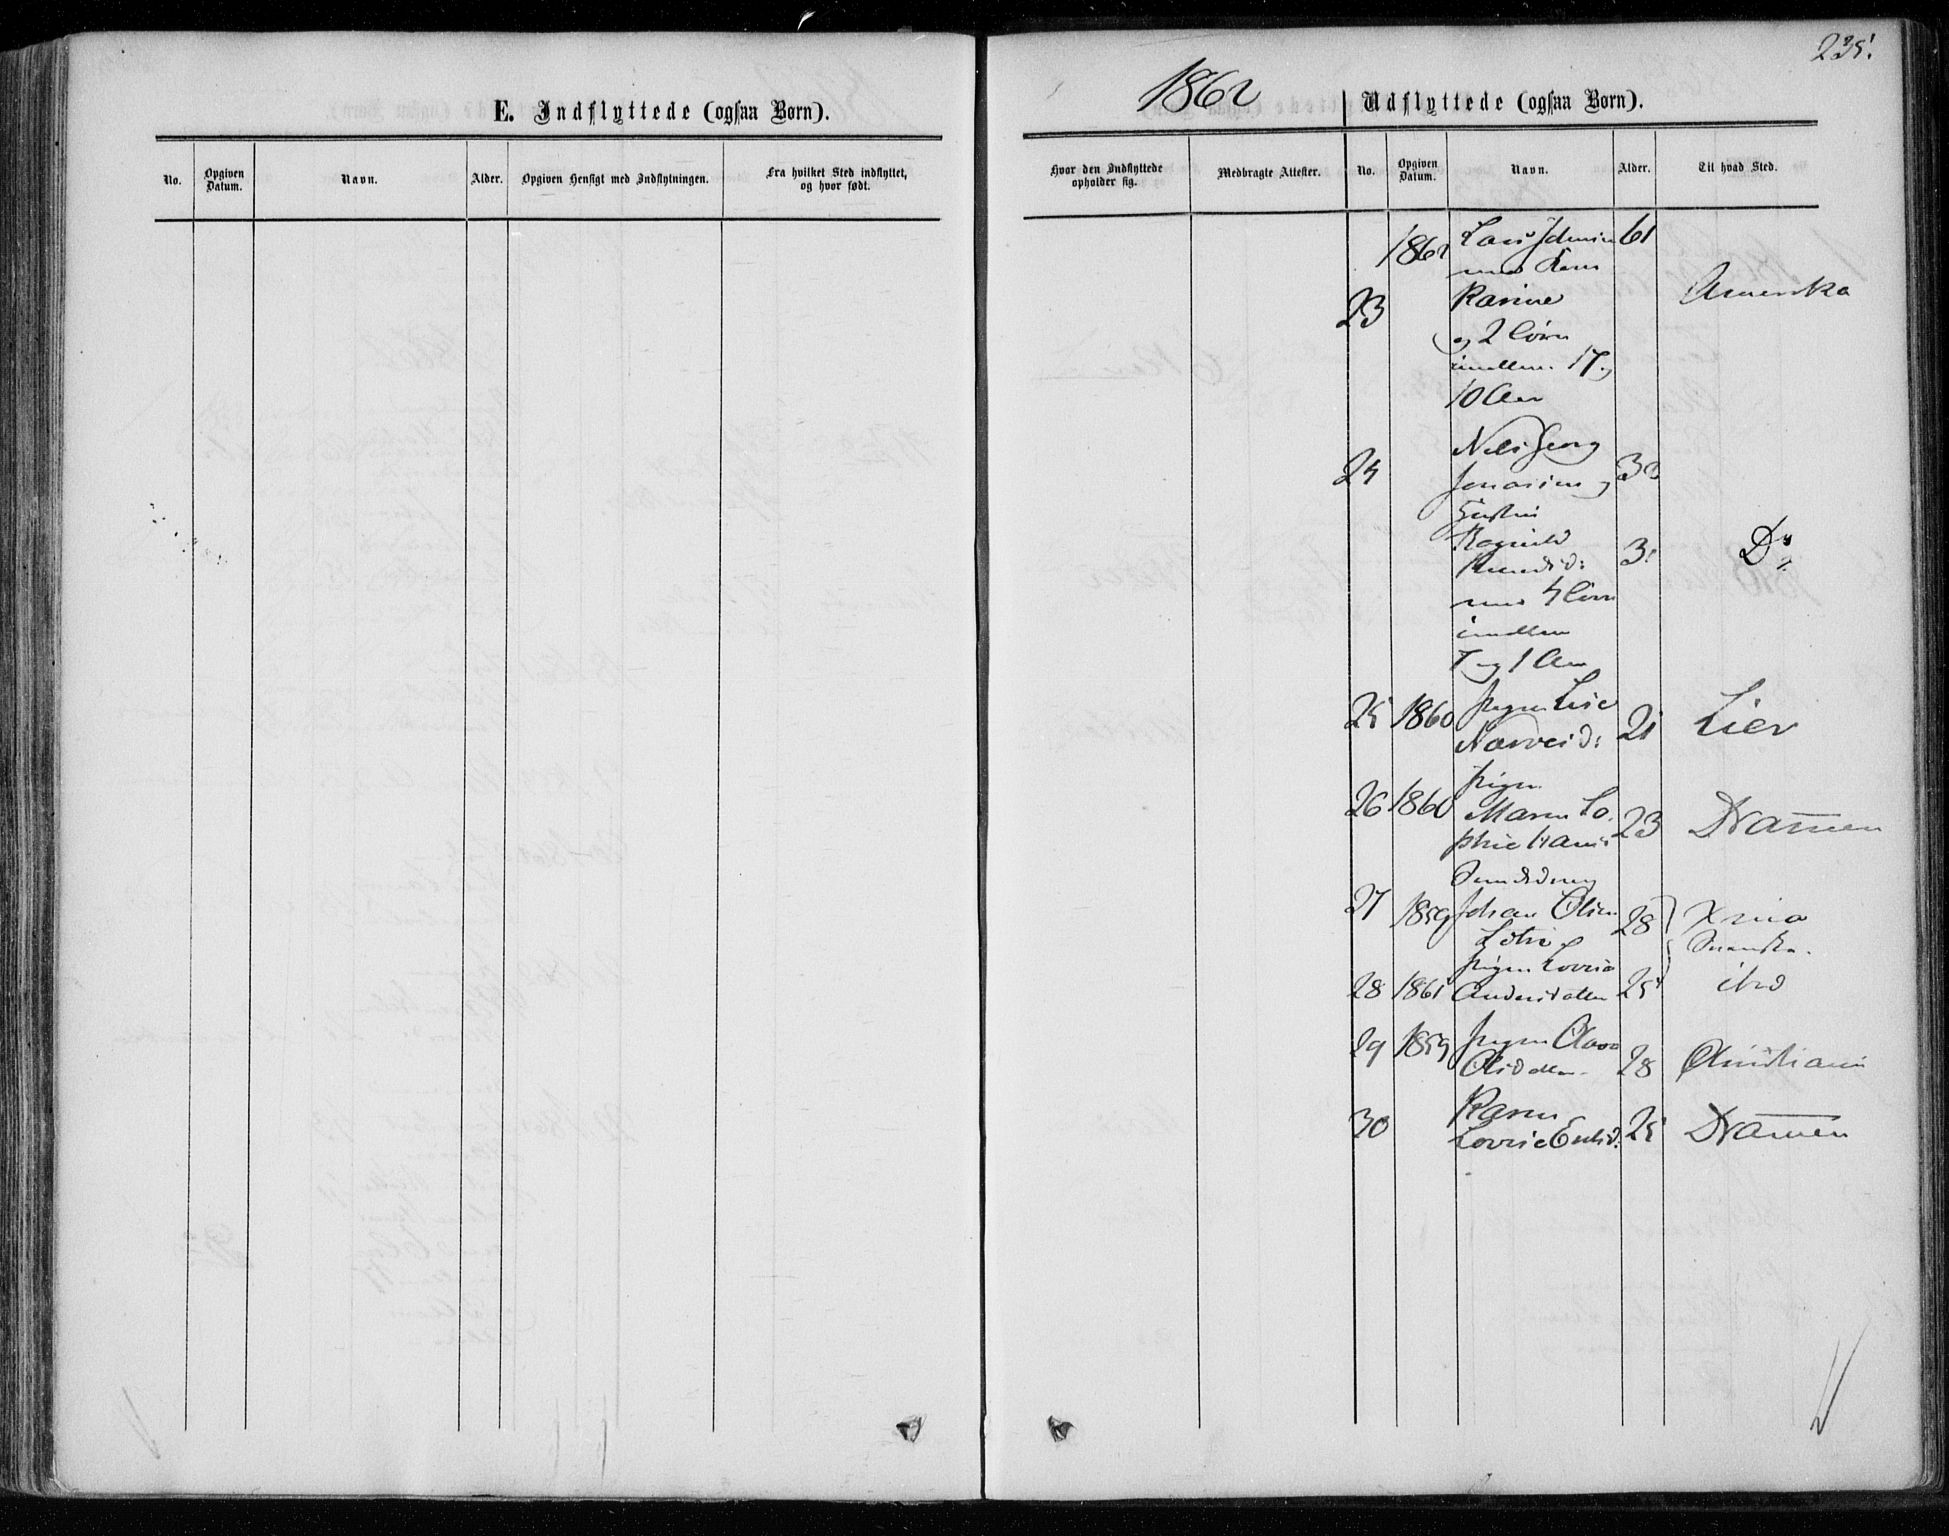 235.
1862
E. Indflyttede (ogsaa Børn).
Udflyttede (ogsaa Børn).
No.
Opgiven Datum.
Navn.
Alder.
Opgiven Hensigt med Indflytningen.
Fra hvilket Sted indflyttet, og hvor født.
Hvor den Indflyttede opholder sig.
Medbragte Attester.
No.
Opgiven Datum.
Navn.
Alder.
Til hvad Sted.
1862 Lars 61
med Kone
23 Karine Amerika
og 2 Børn
imellem 17 og
10 Aar
Nils Georg
24
og
Hustru
Ragnild
Knudsd: Do
med 4 Børn
imellem
7 og 1 Aar
25 1860 Pigen Lise 21 Lier
Narveid:
Pigen
26 1860 Maren So- 23 Dramen
phie Hans
27 1859 Johan Olsen 28 Xnia
Pigen Lovisa
28 1861 Andersdatter 25 ibid
29 1859 Pigen 28 Christiania
Olsdatter
30 Karen 25 Dramen
Lovise